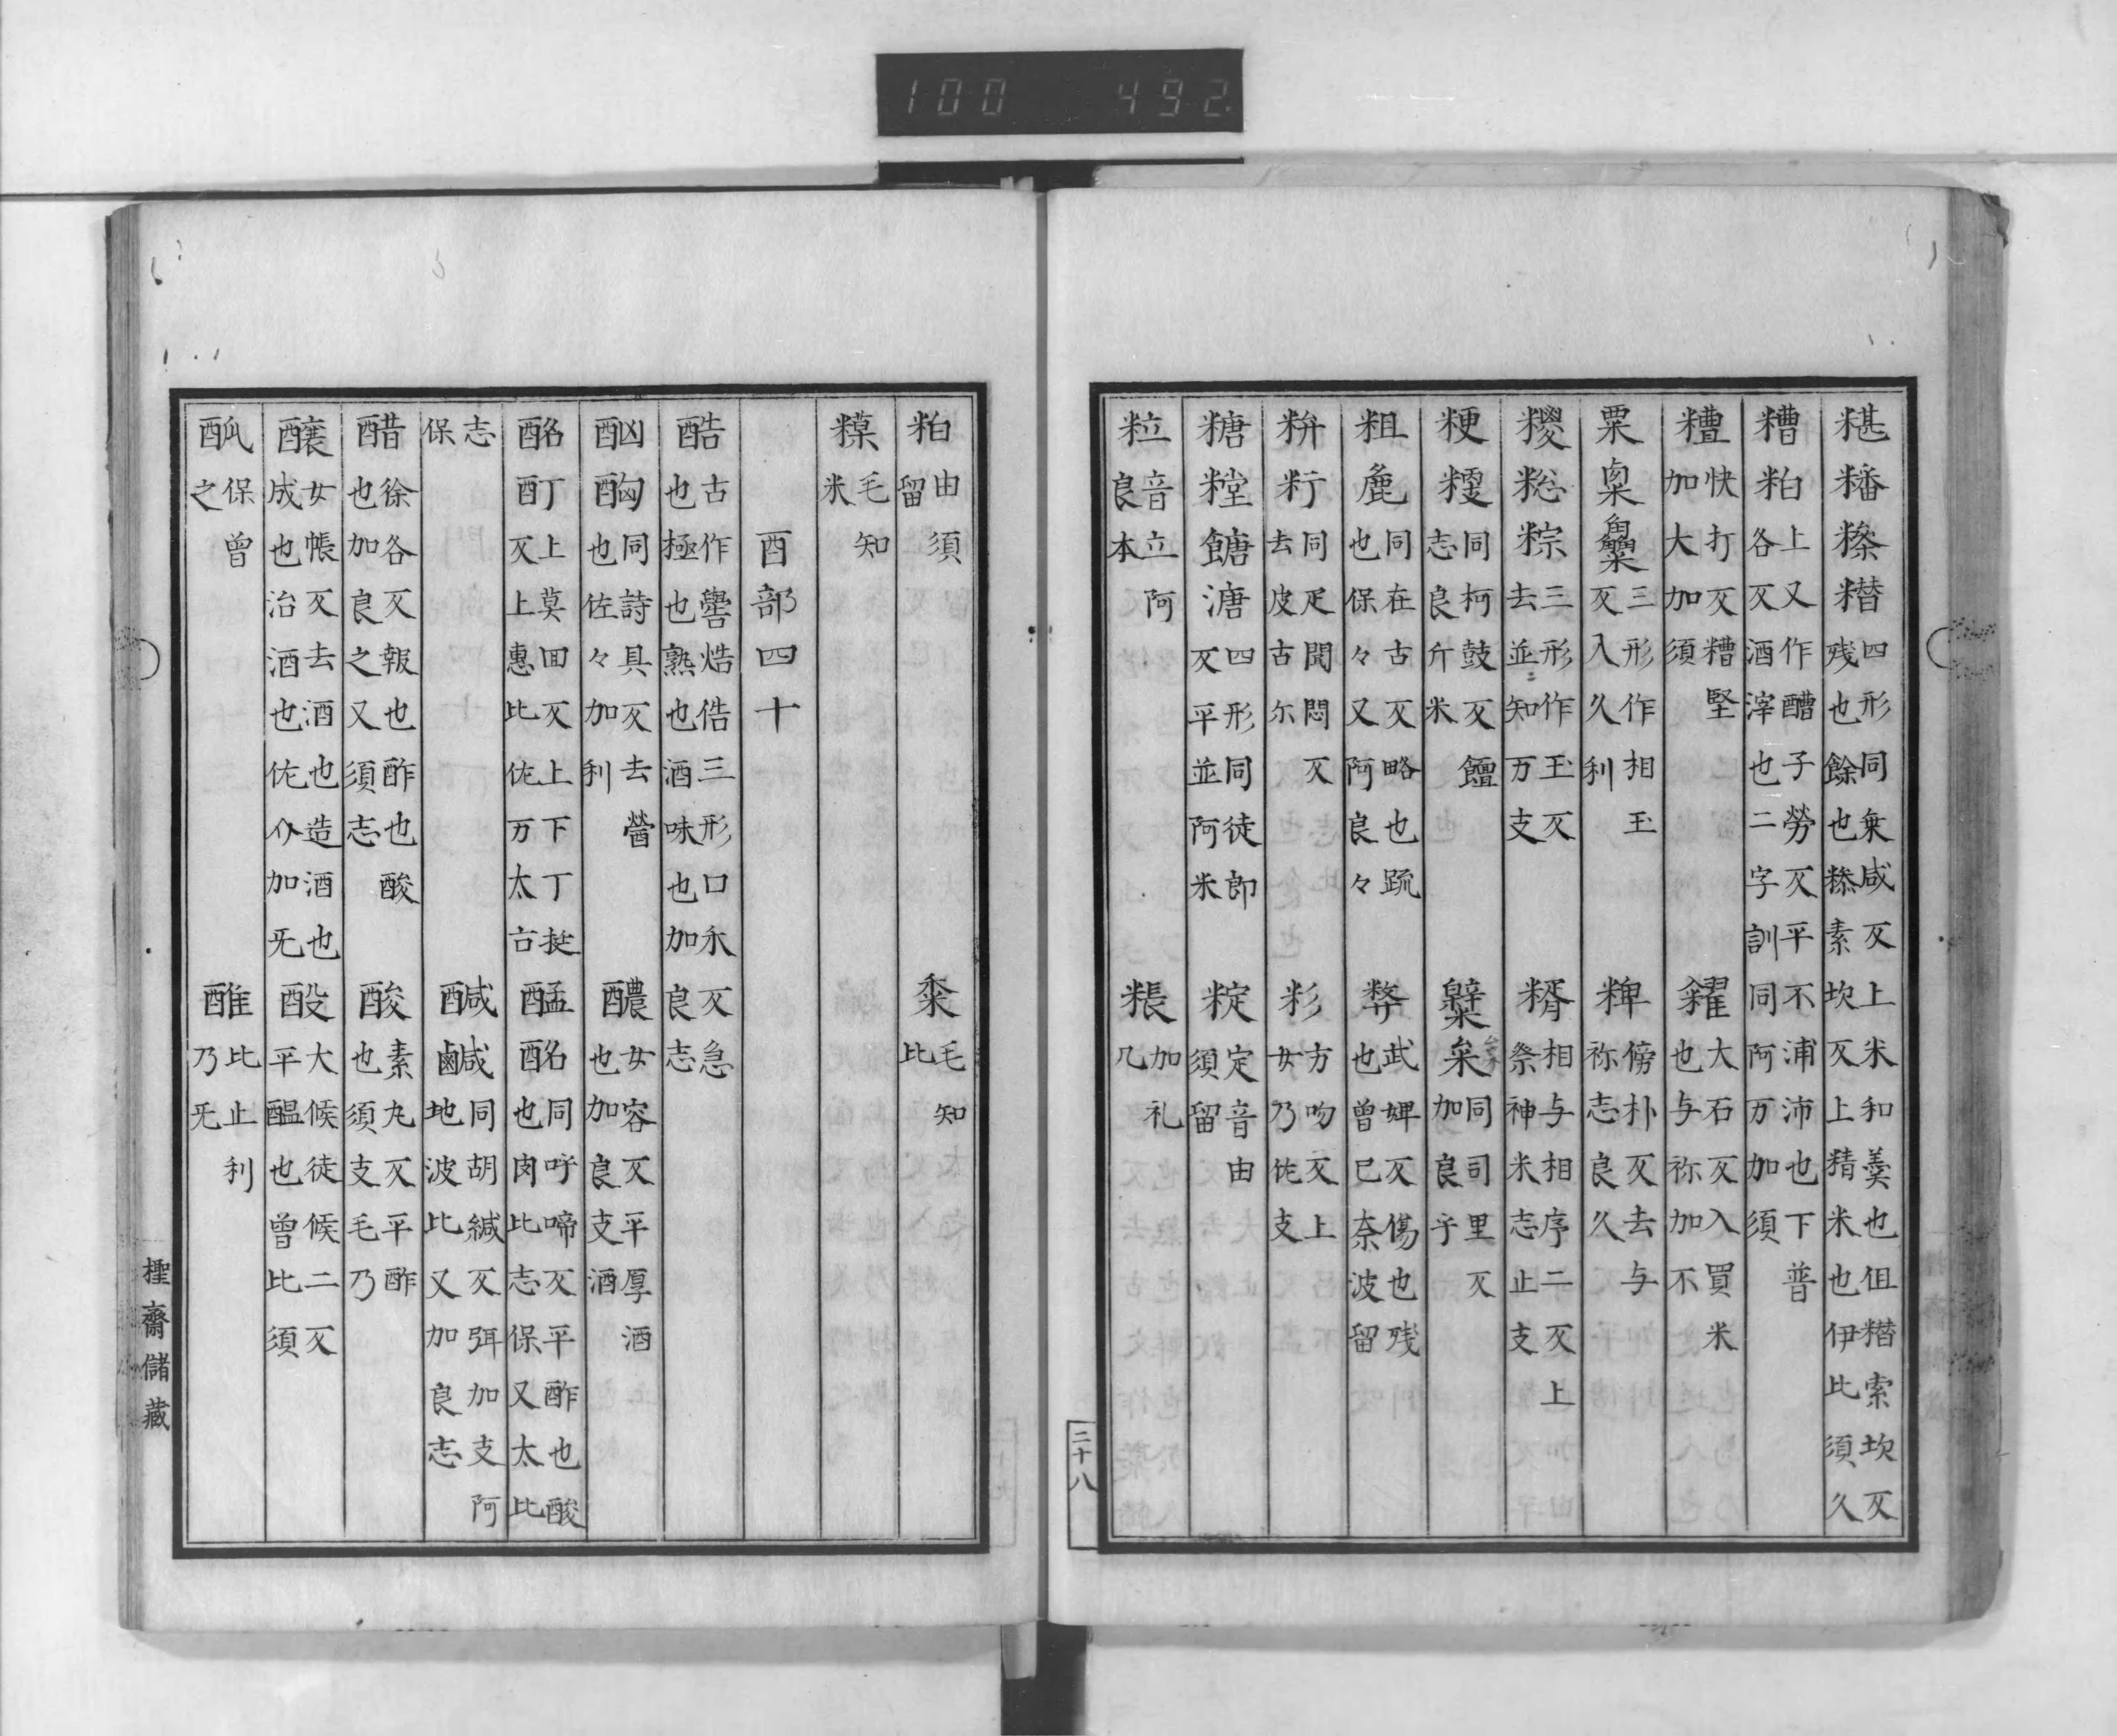 100 492
糂糣糝糌四形同桒咸反上米和羹也伹糌索坎反残也餘也糁素坎反上精米也伊比須久
糟粕上又作醩子勞反平不浦沛也下普各反酒滓也二字訓同阿万加須
䊗快打反糟堅加大加須
糴大石反入買米也与祢加不
粟三形作相玉反入久利
粺傍朴反去与祢志良久
糉糉粽三形作玉反去並知万支
糈相与相序二反上祭神米志止支
粳同柯鼓反饘志良斤米
糳同司里反加良于
粗麁同在古反略也䟽也保々古又阿良々
武婢反傷也残也曾巳奈波留
同疋聞悶反去皮古尓
方吻反上女乃佐支
糖糛餹溏四形同徒郎反平並阿米
定音由須留
粒音立阿良本
粻加礼几
二十八
粕由須留
毛知比
糢毛知米
酉部四十
酷古作嚳焅俈三形口永反急也極也熟也酒味也加良志
酗䣱同詩具反去醟也佐々加利
醲女容反平厚酒也加良支酒
酩酊上莫回反上下丁挺反上惠比佐万太古
同呼啼反平酢也酸也肉比志保又太比
志保
醎鹹同胡緘反弭加支阿地波比又加良志
醋徐各反報也酢也酸也加良之又須志
酸素丸反平酢也須支毛乃
釀女帳反去酒也造酒也成也治酒也佐介加旡
酘大候徒候二反平醞也曾比須
保曾之
比止利乃旡
檉齋儲藏